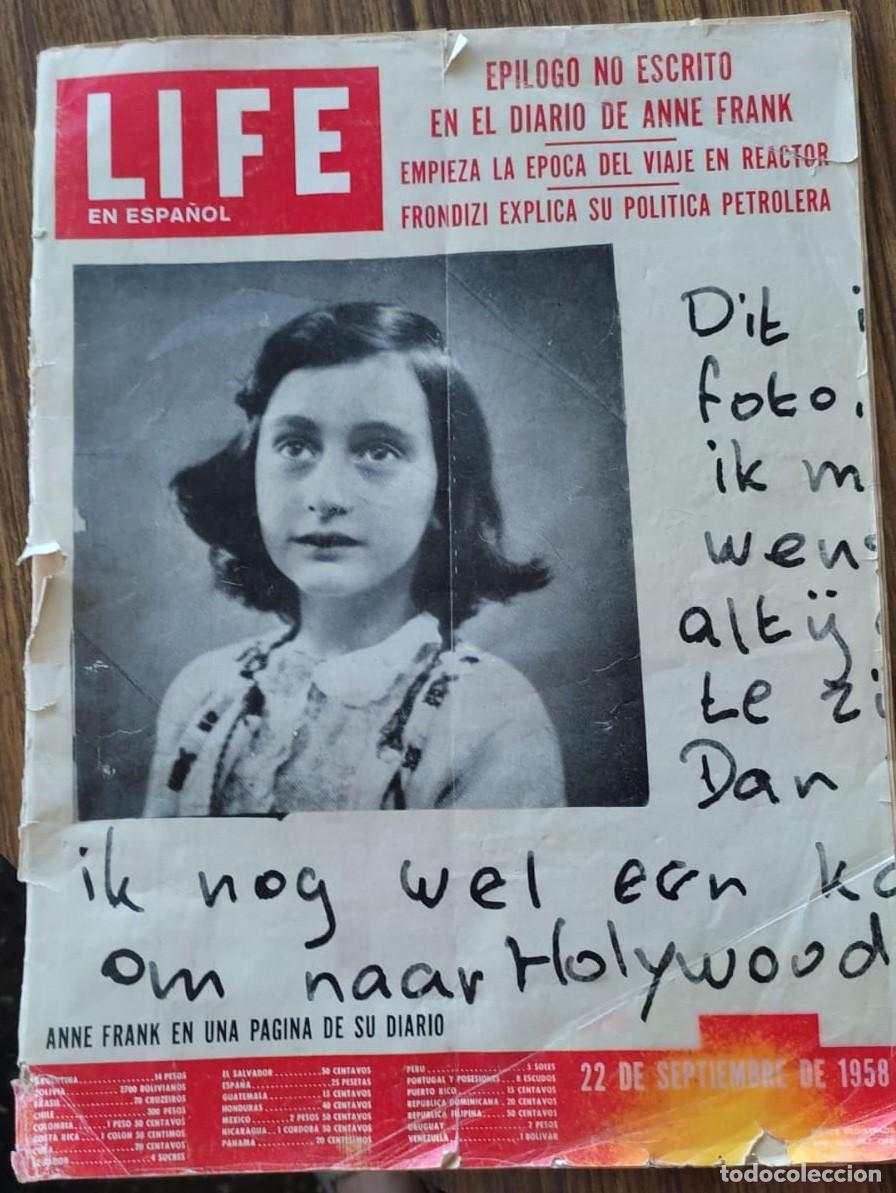 LIFE
EN ESPAÑOL
EPILOGO NO ESCRITO
EN EL DIARIO DE ANNE FRANK
EMPIEZA LA EPOCA DEL VIAJE EN REACTOR
FRONDIZI EXPLICA SU POLITICA PETROLERA
Dit i
foto.
ik m
wens
altij
te zi
Dan
ik nog wel een ka
om naar Holywood
ANNE FRANK EN UNA PAGINA DE SU DIARIO
ARGENTINA 14 PESOS
BOLIVIA 2700 BOLIVIANOS
BRASIL 70 CRUZEIROS
CHILE 300 PESOS
COLOMBIA 1 PESO 50 CENTAVOS
COSTA RICA 1 COLON 50 CENTIMOS
CUBA 20 CENTAVOS
ECUADOR 4 SUCRES
EL SALVADOR 50 CENTAVOS
ESPAÑA 25 PESETAS
GUATEMALA 15 CENTAVOS
HONDURAS 40 CENTAVOS
MEXICO 2 PESOS 50 CENTAVOS
NICARAGUA 1 CORDOBA 50 CENTAVOS
PANAMA 20 CENTESIMOS
PERU 5 SOLES
PORTUGAL Y POSESIONES 8 ESCUDOS
PUERTO RICO 15 CENTAVOS
REPUBLICA DOMINICANA 20 CENTAVOS
REPUBLICA FILIPINA 50 CENTAVOS
URUGUAY 2 PESOS
VENEZUELA 1 BOLIVAR
22 DE SEPTIEMBRE DE 1958
todocoleccion